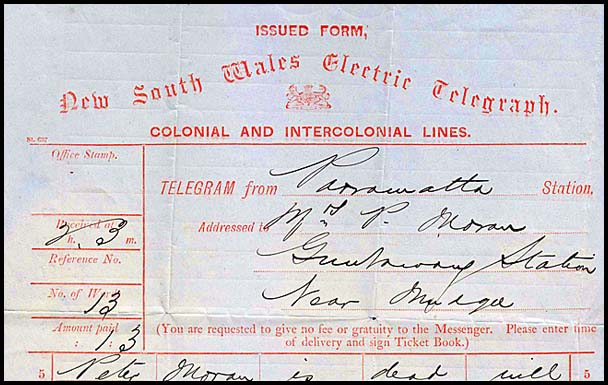 ISSUED FORM,
New South Wales Electric Telegraph.
COLONIAL AND INTERCOLONIAL LINES.
Office Stamp.
TELEGRAM from Parramatta Station,
Received at
3 h. 3 m.
Addressed to Mrs P. Moran
Guntawang Station
Reference No.
Near Mudgee
No. of Wor
13
Amount paid
: 1 : 3
(You are requested to give no fee or gratuity to the Messenger. Please enter time
of delivery and sign Ticket Book.)
5 Peter Moran is dead will 5